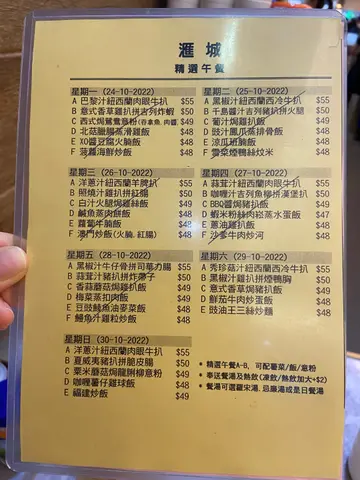 滙城
精選午餐
星期一 (24-10-2022)
A 巴黎汁紐西蘭肉眼牛扒 $55
B 意式香草雞扒拼吉列炸蝦 $50
C 西式焗鴛鴦意粉(吞拿魚,肉醬) $49
D 北菇臘腸蒸滑雞飯 $48
E XO醬豆腐火腩飯 $48
F 菠蘿海鮮炒飯 $48
星期二 (25-10-2022)
A 黑椒汁紐西蘭西冷牛扒 $55
B 千島醬汁吉列豬扒拼火腿 $50
C 葡汁焗雞扒飯 $49
D 豉汁鳳爪蒸排骨飯 $48
E 涼瓜班腩飯 $48
F 雪菜煙鴨絲炆米 $48
星期三 (26-10-2022)
A 洋蔥汁紐西蘭羊脾扒 $55
B 照燒汁雞扒拼紅腸 $50
C 白汁火腿焗雞絲飯 $49
D 鹹魚蒸肉餅飯 $48
E 蘿蔔牛腩飯 $48
F 澳門炒飯(火腩,紅腸) $48
星期四 (27-10-2022)
A 蒜茸汁紐西蘭肉眼牛扒 $55
B 咖喱汁吉列魚柳拼漢堡扒 $50
C BBQ醬焗豬扒飯 $49
D 蝦米粉絲肉崧蒸水蛋飯 $47
E 蔥油雞扒飯 $48
F 沙爹牛肉炒河 $48
星期五 (28-10-2022)
A 黑椒汁牛仔骨拼司華力腸 $55
B 蒜蓉汁豬扒拼炸帶子 $50
C 香蒜蘑菇焗雞扒飯 $49
D 梅菜蒸扣肉飯 $49
E 豆豉鯪魚油麥菜飯 $48
F 鰻魚汁雞粒炒飯 $48
星期六 (29-10-2022)
A 秀珍菇汁紐西蘭西冷牛扒 $55
B 黑椒汁雞扒拼煙鴨胸 $50
C 意式香草焗豬扒飯 $49
D 鮮茄牛肉炒蛋飯 $48
E 豉油王三絲炒麵 $48
星期日 (30-10-2022)
A 洋蔥汁紐西蘭肉眼牛扒 $55
B 夏威夷豬扒拼脆皮腸 $50
C 粟米蘑菇焗龍脷柳意粉 $49
D 咖喱薯仔雞球飯 $48
E 福建炒飯 $49
* 精選午餐A-B, 可配薯菜/飯/意粉
* 奉送餐湯及熱飲(凍飲/熱飲加大+$2)
* 餐湯可選羅宋湯, 忌廉湯或是日餐湯